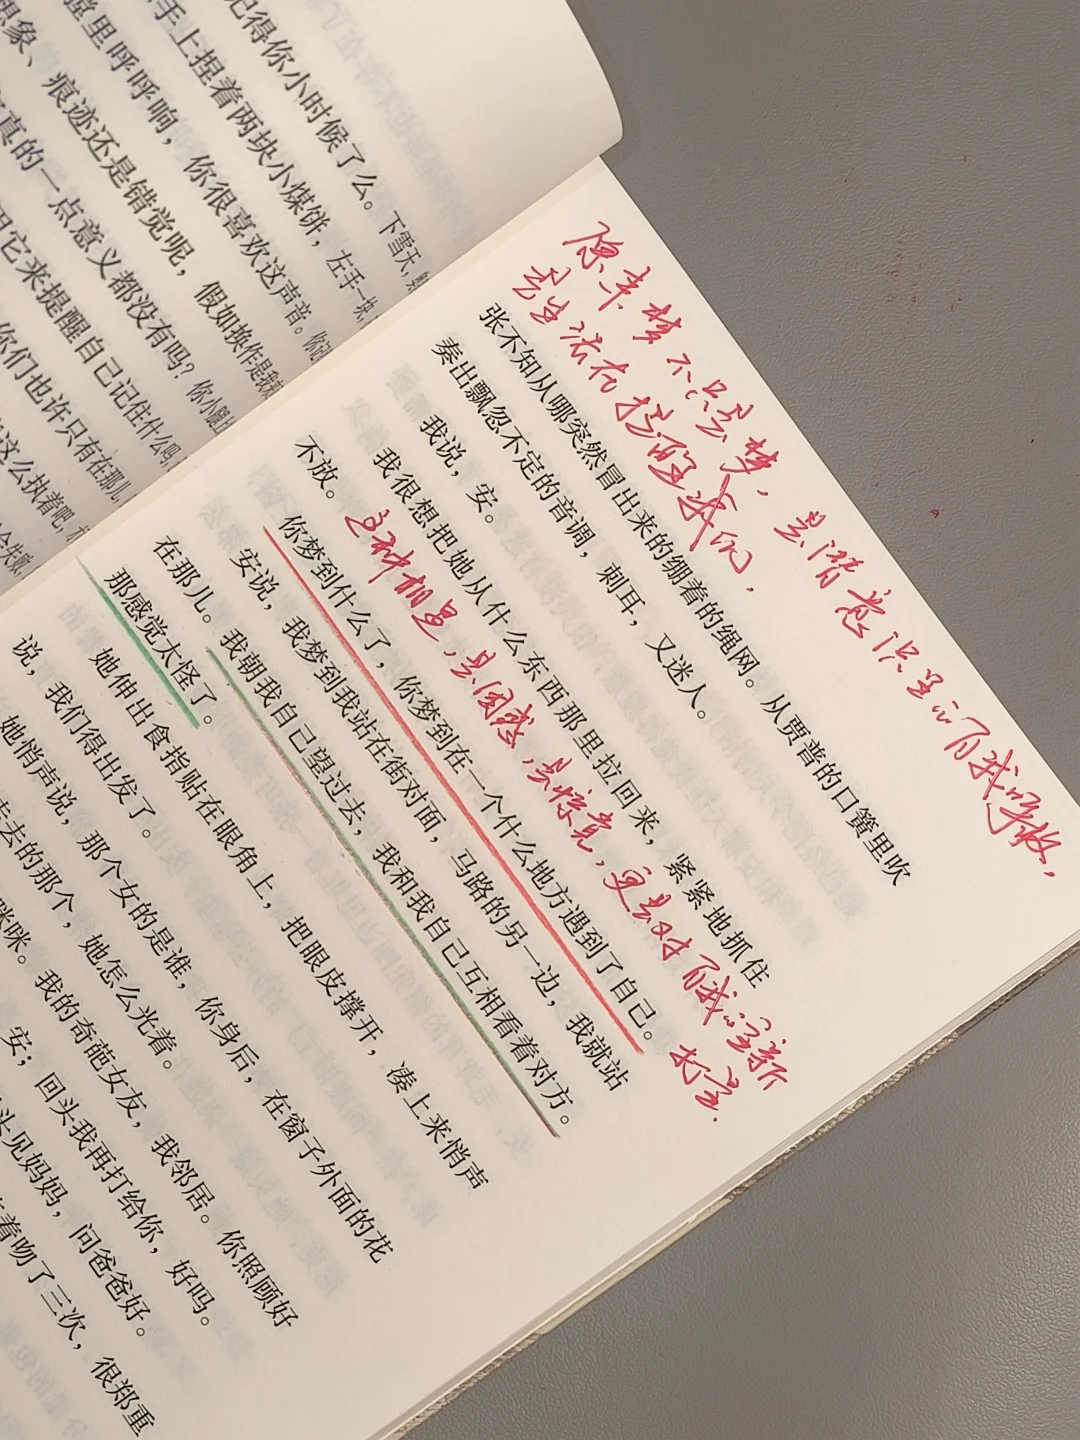 记得你小时候了么。下雪天,
手上捏着两块小煤饼，左手一块,
膛里呼呼响，你很喜欢这声音。你记
想象、痕迹还是错觉呢，假如换作是我
真的一点意义都没有吗？你小腿上
用它来提醒自己记住什么吗,
你们也许只有在那儿,
这么执着吧,
会失败,
原来梦不只是梦，是潜意识里的自我呼救，
是生活在提醒我们，
张不知从哪突然冒出来的绷着的绳网。从贾普的口簧里吹
奏出飘忽不定的音调，刺耳，又迷人。
我说，安。
我很想把她从什么东西那里拉回来，紧紧地抓住
不放。
这种相遇，是困惑，是惊竞，更是对自我的重新
打量.
你梦到什么了，你梦到在一个什么地方遇到了自己。
安说，我梦到我站在街对面，马路的另一边，我就站
在那儿。我朝我自己望过去，我和我自己互相看着对方。
那感觉太怪了。
她伸出食指贴在眼角上，把眼皮撑开，凑上来悄声
说，我们得出发了。
她悄声说，那个女的是谁，你身后，在窗子外面的花
去的那个，她怎么光着。
咪咪。我的奇葩女友，我邻居。你照顾好
安；回头我再打给你，好吗。
头见妈妈，问爸爸好。
着吻了三次，很郑重